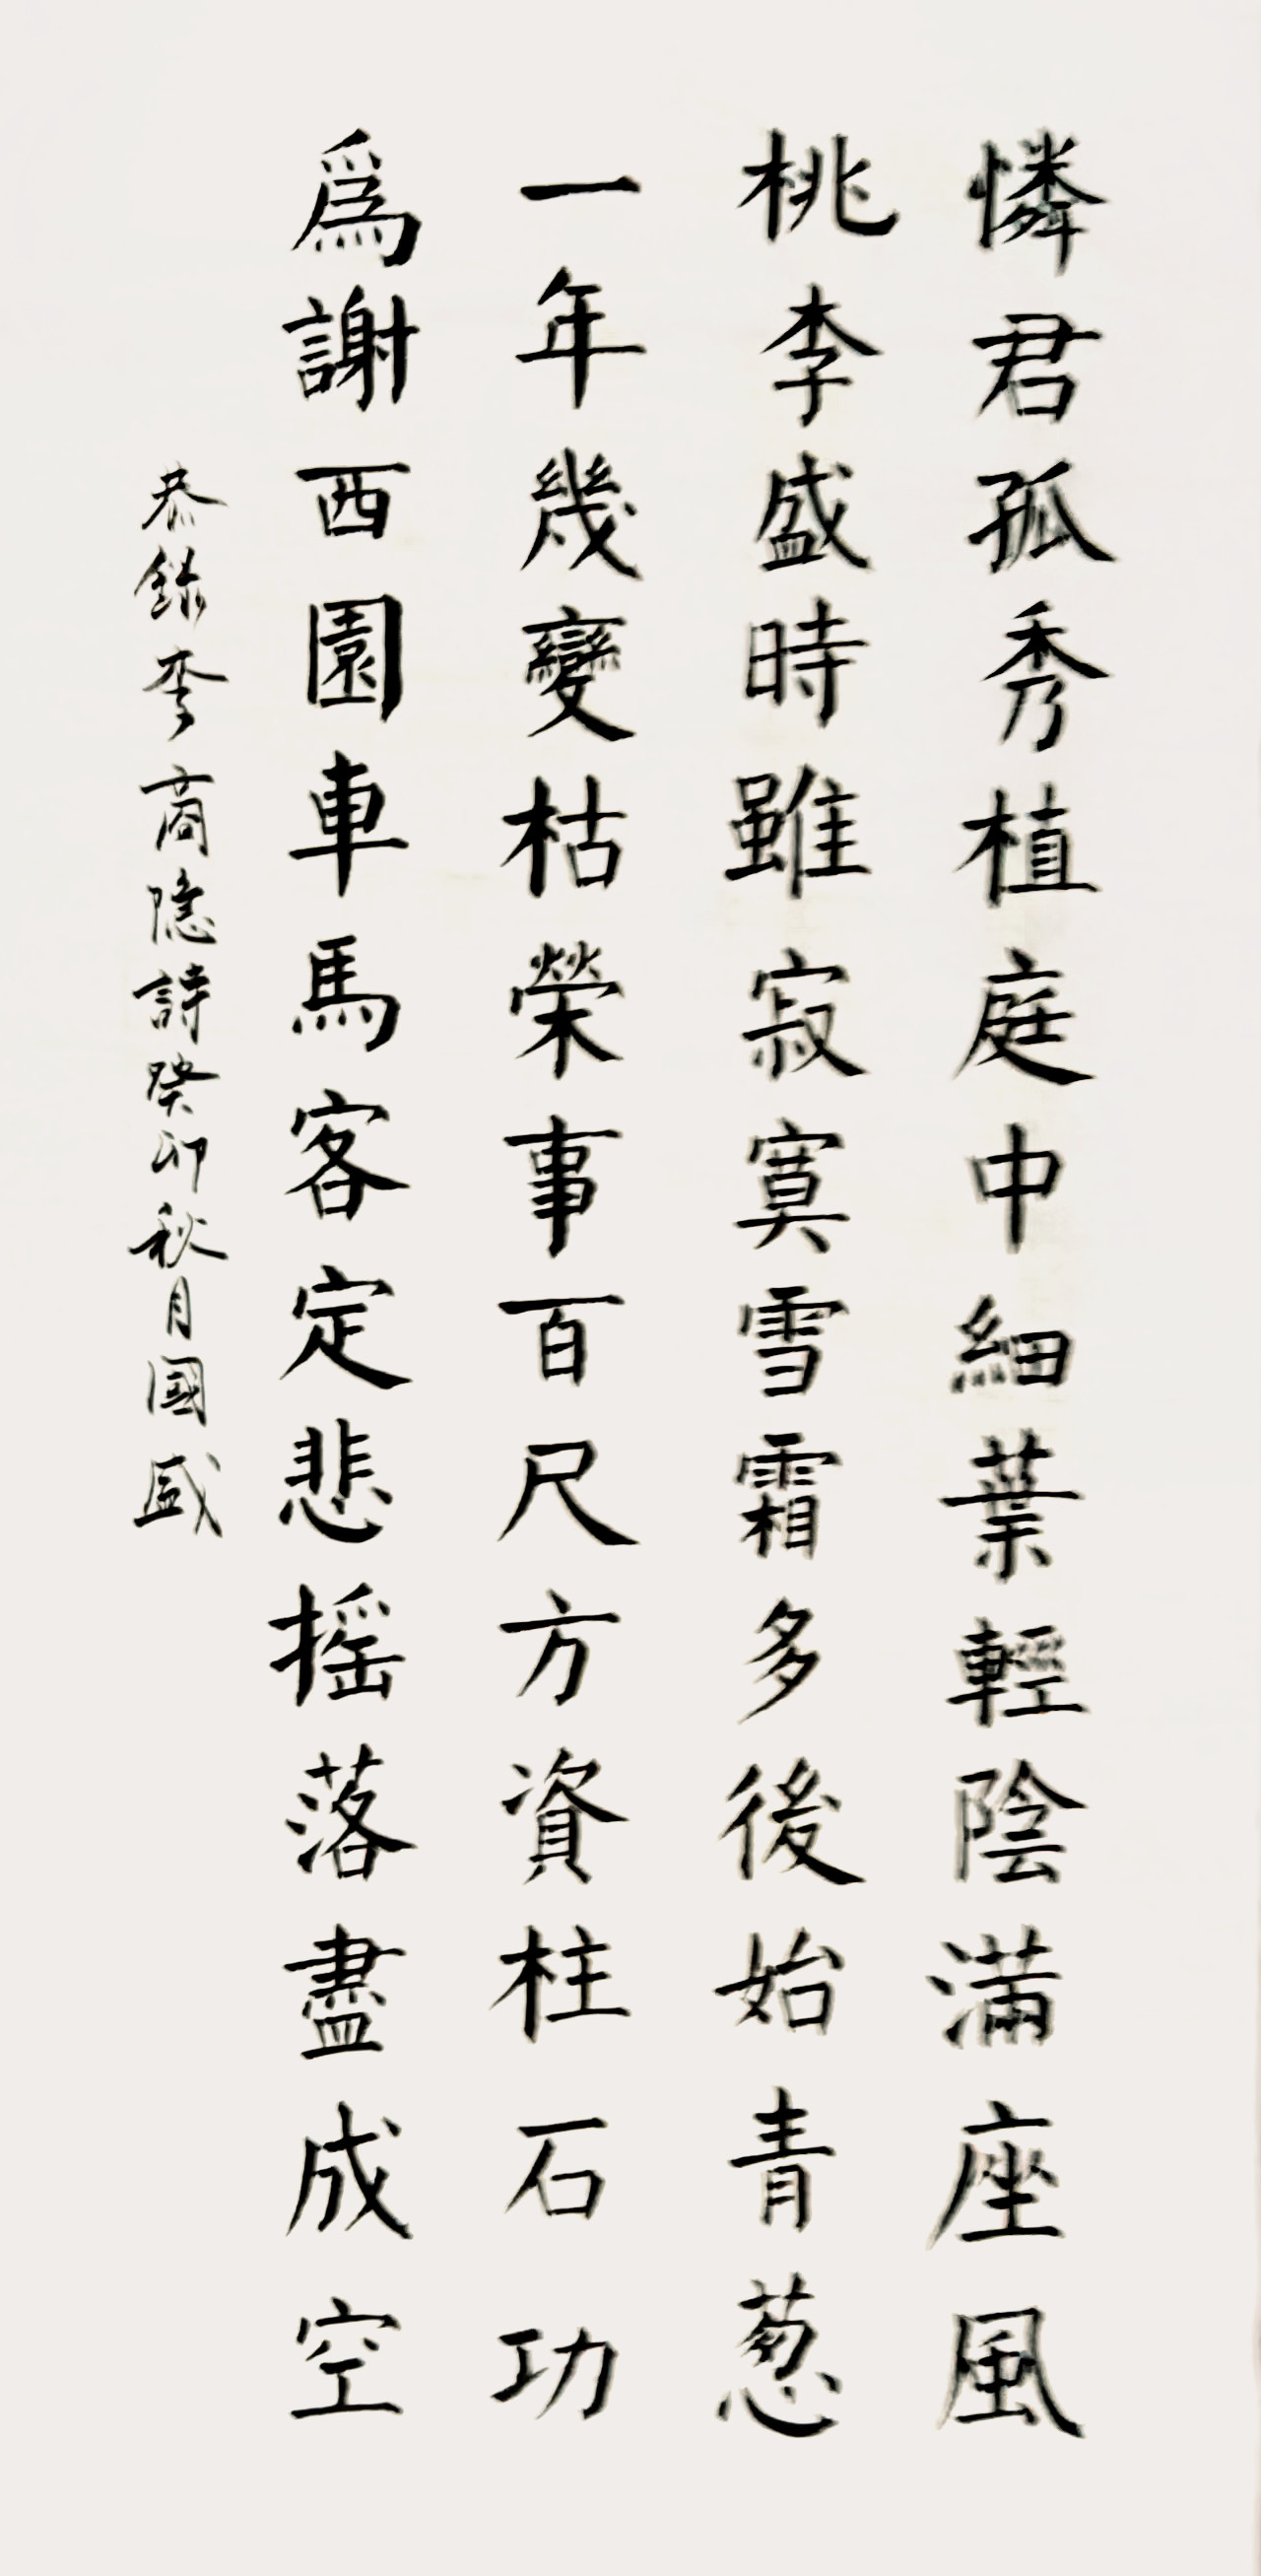 憐君孤秀植庭中細葉輕陰滿座風
桃李盛時雖寂寞雪霜多後始青葱
一年幾變枯榮事百尺方資柱石功
爲謝西園車馬客定悲摇落盡成空
恭錄李商隐詩癸卯秋月國盛